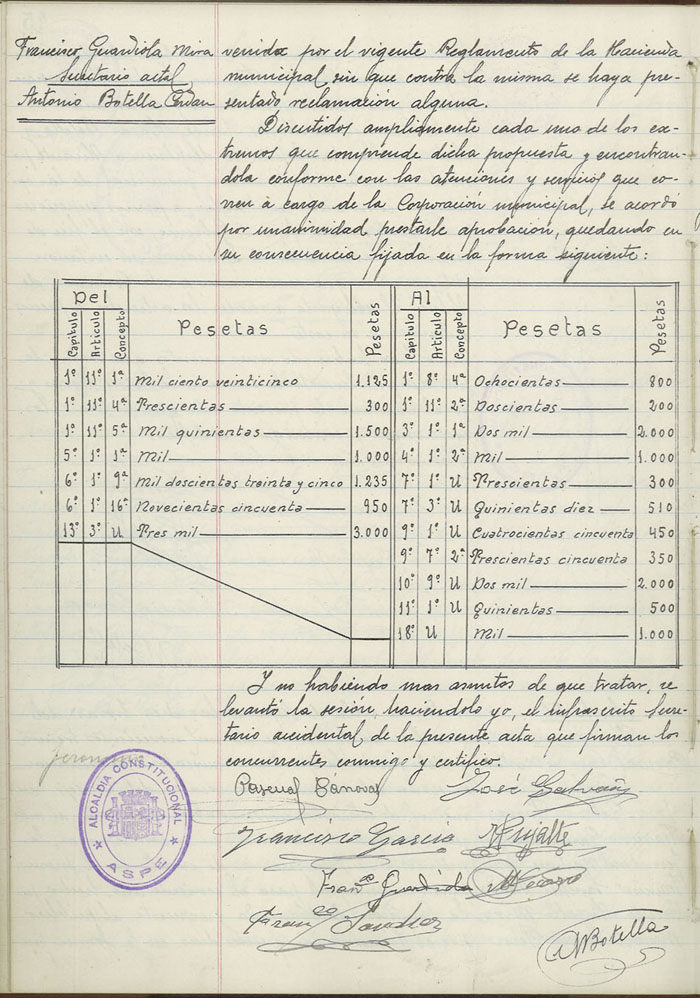 Francisco Guardiola Mira
Secretario actal
Antonio Botella Cerdan
venidos por el vigente Reglamento de la Hacienda
municipal sin que contra la misma se haya pre-
sentado reclamación alguna.
Discutidos ampliamente cada uno de los ex-
tremos que comprende dicha propuesta y encontran-
dola conforme con las atenciones y servicios que co-
rren à cargo de la Corporación municipal, se acordó
por unanimidad prestarle aprobación, quedando en
su consecuencia fijada en la forma siguiente:
Del Al
Capitulo Articulo Concepto Pesetas Pesetas Capitulo Articulo Concepto Pesetas Pesetas
1º 11º 1ª Mil ciento veinticinco 1.125 1º 8º 4ª Ochocientas 800
1º 11º 4ª Trescientas 300 1º 11º 2ª Doscientas 200
1º 11º 5ª Mil quinientas 1.500 3º 1º 1ª Dos mil 2.000
5º 1º 1ª Mil 1.000 4º 1º 2ª Mil 1.000
6º 1º 9ª Mil doscientas trainta y cinco 1.235 7º 1º U Trescientas 300
6º 1º 16ª Novecientas cincuenta 950 7º 3º U Quinientas diez 510
13º 3º U Tres mil 3.000 9º 1º U Cuatrocientas cincuenta 450
9º 7º 2ª Trescientas cincuenta 350
10º 9º U Dos mil 2.000
11º 1º U Quinientas 500
18º U Mil 1.000
Y no habiendo mas asuntos de que tratar, se
levantó la sesión, haciéndolo yo, el infrascrito Secre-
tario accidental de la presente acta que firman los
concurrentes conmigo y certifico.
Pascual Cánovas José Galvañ
ALCALDIA CONSTITUCIONAL
ASPE
Francisco Garcia
Franco Guardiola
Franco
Botella